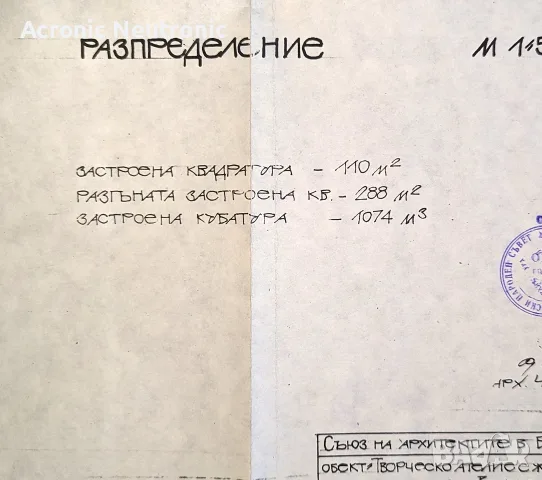 Acronis Nentronic
РАЗПРЕДЕЛЕНИЕ М 1:5
ЗАСТРОЕНА КВАДРАТУРА – 110 М²
РАЗГЪНАТА ЗАСТРОЕНА КВ. – 288 М²
ЗАСТРОЕНА КУБАТУРА – 1074 М³
НАРОДЕН СЪВЕТ
АРХ.
СЪЮЗ НА АРХИТЕКТИТЕ В Б
ОБЕКТ: ТВОРЧЕСКО АТЕЛИЕ С Ж